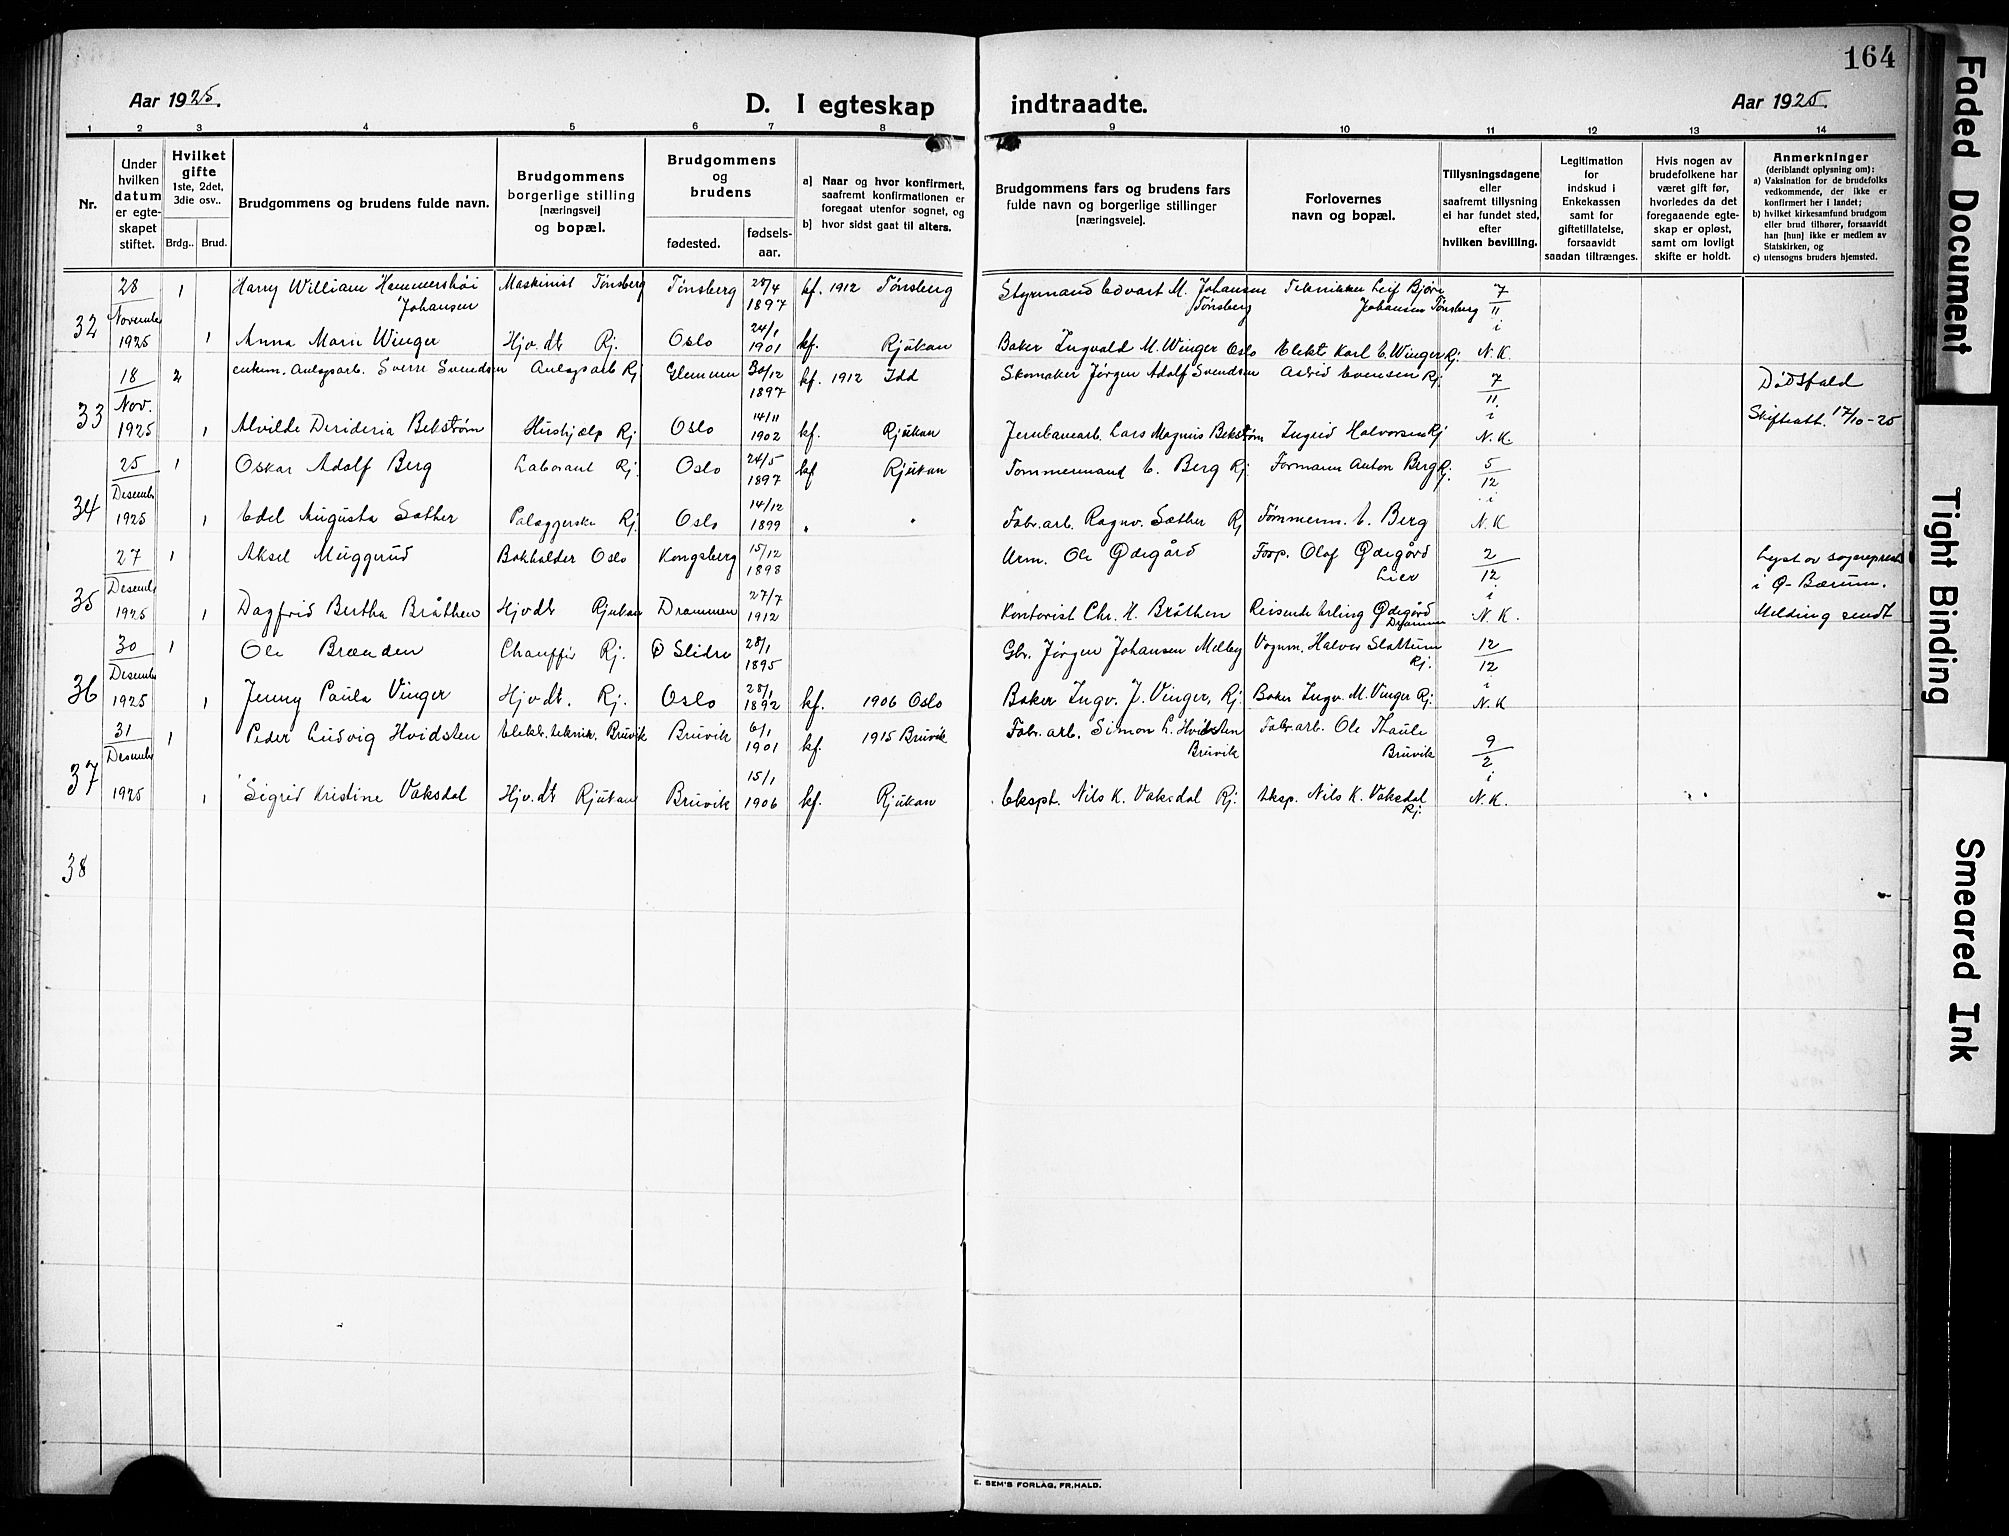 164
Aar 1925.
D. I egteskap indtraadte.
Aar 1925.
1 2 3 4 5 6 7 8 9 10 11 12 13 14
Nr.
Under
hvilken
datum
er egte-
skapet
stiftet.
Hvilket
gifte
1ste, 2det,
3die osv..
Brdg.. Brud.
Brudgommens og brudens fulde navn.
Brudgommens
borgerlige stilling
[næringsvei]
og bopæl.
Brudgommens
og
brudens
fødested.
fødsels-
aar.
a] Naar og hvor konfirmert,
saafremt konfirmationen er
foregaat utenfor sognet, og
b] hvor sidst gaat til alters.
Brudgommens fars og brudens fars
fulde navn og borgerlige stillinger
[næringsveie].
Forlovernes
navn og bopæl.
Tillysningsdagene
eller
saafremt tillysning
ei har fundet sted,
efter
hvilken bevilling.
Legitimation
for
indskud i
Enkekassen
samt for
giftetillatelse,
forsaavidt
saadan tiltrænges.
Hvis nogen av
brudefolkene har
været gift før,
hvorledes da det
foregaaende egte-
skap er opløst,
samt om lovligt
skifte er holdt.
Anmerkninger
(deriblandt oplysning om):
a) Vaksination for de brudefolks
vedkommende, der ikke er
konfirmert her i landet;
b) hvilket kirkesamfund brudgom
eller brud tilhører, forsaavidt
han [hun] ikke er medlem av
Statskirken, og
c) utensogns bruders hjemsted.
32 28 November 1925
1 Harry William Hammershøi Johansen Maskinist Tønsberg Tønsberg 28/4 1897 kf. 1912 Tønsberg Styrmand Edvart M. Johansen Tønsberg Tekniker Leif Bjøre Johansen Tønsberg 7/11 i
1 Anna Marie Winger Hjv. dt Rj. Oslo 24/1 1901 kf. Rjukan Baker Ingvald M. Winger Oslo Elekt Karl E. Winger Rj. N. K.
33 18 Nov. 1925
2 enkem. Anlegsarb. Sverre Svendsen Anlegsarb Rj Glemmen 30/12 1897 kf. 1912 Idd Skomaker Jørgen Adolf Svendsen Astrid Evensen Rj 7/11 i Dødsfald
1 Alvilde Desideria Bekstrøm Hushjælp Rj Oslo 14/11 1902 kf. Rjukan Jernbanearb. Lars Magnus Bekstrøm Ingrid Halvorsen Rj N. K. Skifteatt. 17/10-25
34 25 Desemb 1925
1 Oskar Adolf Berg Laborant Rj. Oslo 24/5 1897 kf Rjukan Tømmermand E. Berg Rj. Formann Anton Berg Rj. 5/12 i
1 Edel Augusta Sæther Rj. Oslo 14/12 1899 Fabr. arb. Ragnv. Sæther Rj Tømmerm. E. Berg N. K
35 27 Desemb 1925
1 Aksel Muggerud Bokholder Oslo Kongsberg 15/12 1898 Urm. Ole Ødegård Forp. Olaf Ødegård Lier 2/12 i Lyst av sogneprest
i Ø-Bærum.
1 Dagfrid Bertha Bråthen Hjv dt Rjukan Drammen 27/7 1912 Kontorist Chr. H. Bråthen Reisende Erling Ødegård Drammen N. K. Melding sendt
36 30 Desemb 1925
1 Ole Brænden Chauffør Rj. Ø Slidre 28/1 1895 Gbr. Jørgen Johansen Melby Vognm. Halvor Slåttum Rj. 12/12 i
1 Jenny Paula Vinger Hjv. dt. Rj. Oslo 28/1 1892 kf. 1906 Oslo Baker Ingv. J. Vinger, Rj. Baker Ingv. M. Vinger Rj. N. K
37 31 Desemb 1925
1 Peder Ludvig Hvidsten Elektr. teknik. Bruvik Bruvik 6/1 1901 kf. 1915 Bruvik Fabr. arb. Simon L. Hvidsten Bruvik Fabr. arb. Ole Thaule Bruvik 9/2 i
1 Sigrid Kristine Vaksdal Hjv. dt Rjukan Bruvik 15/1 1906 kf. Rjukan Ekspt. Nils K. Vaksdal Rj. Eksp. Nils K. Vaksdal Rj. N. K.
38
E. SEM'S FORLAG, FR.HALD.
Faded Document
Tight Binding
Smeared Ink